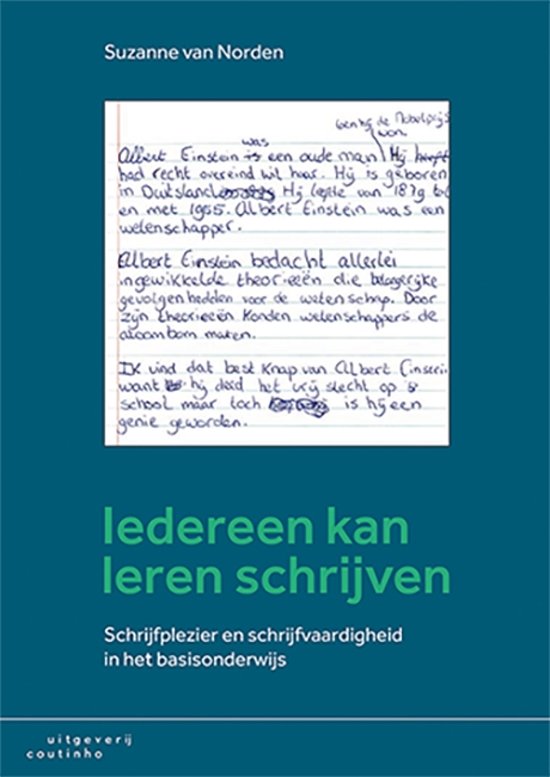 Suzanne van Norden
toen hij de Nobelprijs
was won.
Albert Einstein is een oude man Hij heeft
had recht overeind wit haar. Hij is geboren
in Duitsland Hij leefde van 1879 tot
en met 1955. Albert Einstein was een
wetenschapper.
Albert Einstein bedacht allerlei
ingewikkelde theorieeën die belangrijke
gevolgen hadden voor de wetenschap. Door
zijn theorieeën konden wetenschappers de
atoombom maken.
Ik vind dat best knap van Albert Einstein
want hij deed het vrij slecht op
school maar toch is hij een
genie geworden.
Iedereen kan
leren schrijven
Schrijfplezier en schrijfvaardigheid
in het basisonderwijs
uitgeverij
coutinho